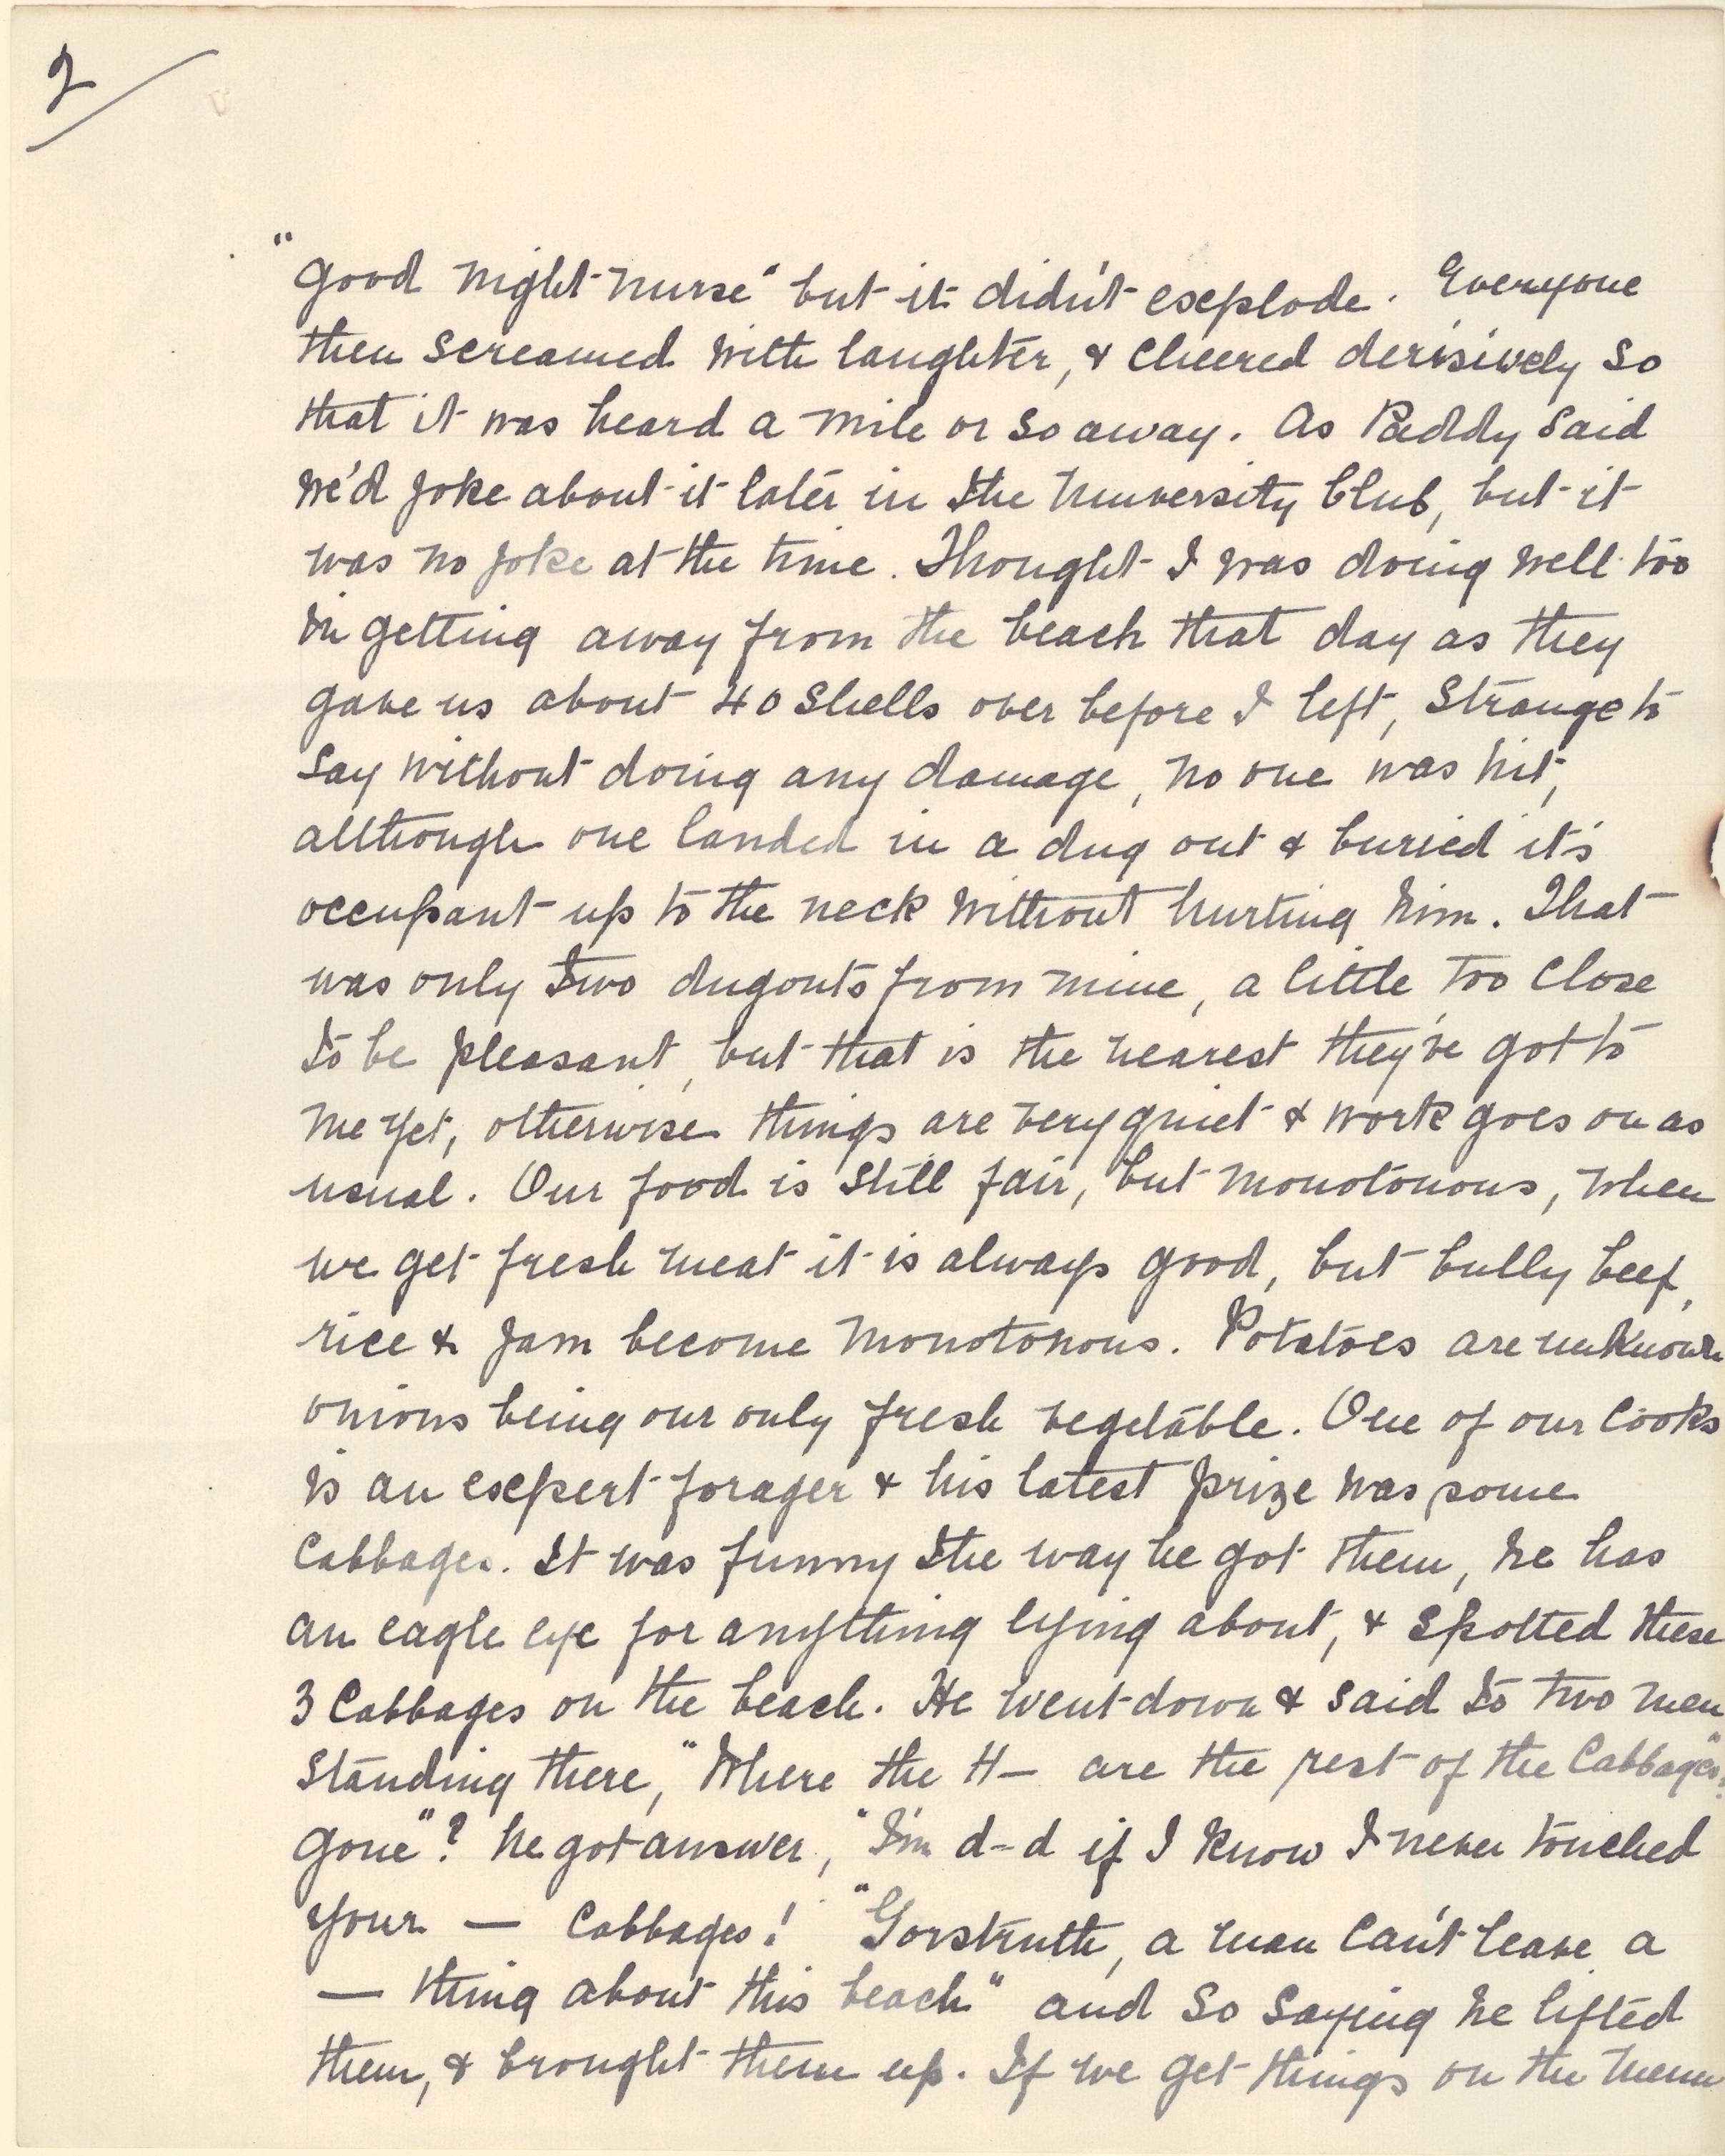 2
"Good night nurse" but it didn't explode. Everyone
then screamed with laughter, & cheered derisively so
that it was heard a mile or so away. As Paddy said
we'd joke about it later in the University Club, but it
was no joke at the time. Thought I was doing well too
in getting away from the beach that day as they
gave us about 40 shells over before I left, Strange to
say without doing any damage, no one was hit,
although one landed in a dug out & buried it's
occupant up to the neck without hurting him. That
was only two dugouts from mine, a little too close
to be pleasant, but that is the nearest they've got to
me yet, otherwise things are very quiet & work goes on as
usual. Our food is still fair, but monotonous, when
we get fresh meat it is always good, but bully beef,
rice & jam become monotonous. Potatoes are unknown
onions being our only fresh vegetable. One of our cooks
is an expert forager & his latest prize was some
cabbages. It was funny the way he got them, he has
an eagle eye for anything lying about, & spotted these
3 cabbages on the beach. He went down & said to two men
standing there, "Where the H— are the rest of the Cabbages"
gone"? he got answer, "I'm d-d if I know I never touched
your — cabbages! "Gorstruth, a man can't leave a
— thing about this beach" and so saying he lifted
them, & brought them up. If we get things on the menu